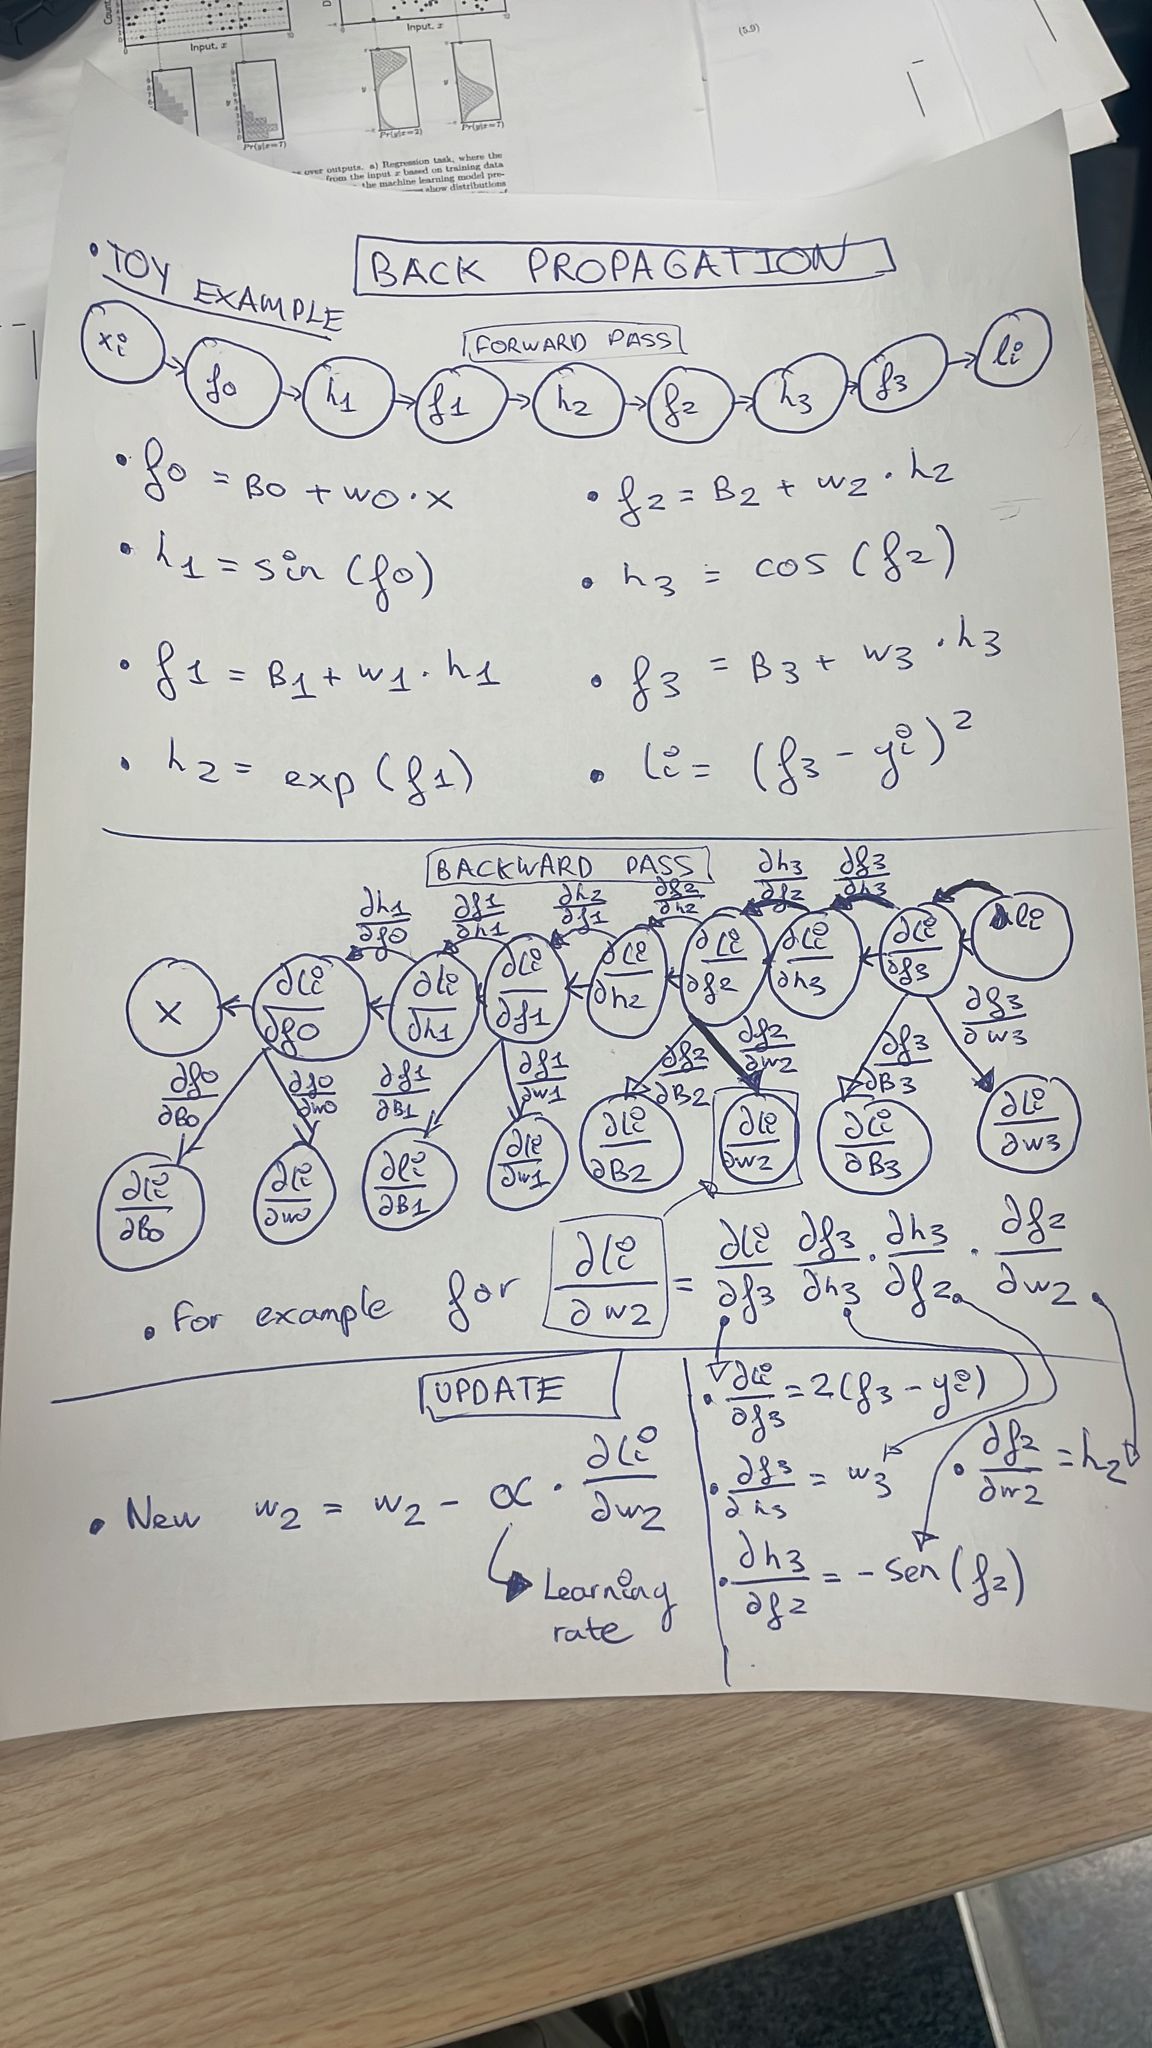 Input, x
Input, x
(5.9)
Pr(y|x=7)
Pr(y|x=2)
Pr(y|x=7)
over outputs. a) Regression task, where the
from the input x based on training data
the machine learning model pre-
show distributions
• TOY EXAMPLE
BACK PROPAGATION
FORWARD PASS
xi → f0 → h1 → f1 → h2 → f2 → h3 → f3 → li
• f0 = B0 + w0 · x
• f2 = B2 + w2 · h2
• h1 = sin (f0)
• h3 = cos (f2)
• f1 = B1 + w1 · h1
• f3 = B3 + w3 · h3
• h2 = exp (f1)
• li = (f3 - yi)²
BACKWARD PASS
∂h1/∂f0 ∂f1/∂h1 ∂h2/∂f1 ∂f2/∂h2 ∂h3/∂f2 ∂f3/∂h3
x ∂li/∂f0 ∂li/∂h1 ∂li/∂f1 ∂li/∂h2 ∂li/∂f2 ∂li/∂h3 ∂li/∂f3 li
∂f0/∂B0 ∂f0/∂w0 ∂f1/∂B1 ∂f1/∂w1 ∂f2/∂B2 ∂f2/∂w2 ∂f3/∂B3 ∂f3/∂w3
∂li/∂B0 ∂li/∂w0 ∂li/∂B1 ∂li/∂w1 ∂li/∂B2 ∂li/∂w2 ∂li/∂B3 ∂li/∂w3
• For example for ∂li/∂w2 = ∂li/∂f3 ∂f3/∂h3 · ∂h3/∂f2 · ∂f2/∂w2
UPDATE
• New w2 = w2 - α · ∂li/∂w2
Learning
rate
• ∂li/∂f3 = 2(f3 - yi)
• ∂f3/∂h3 = w3
• ∂f2/∂w2 = h2
• ∂h3/∂f2 = - sen (f2)